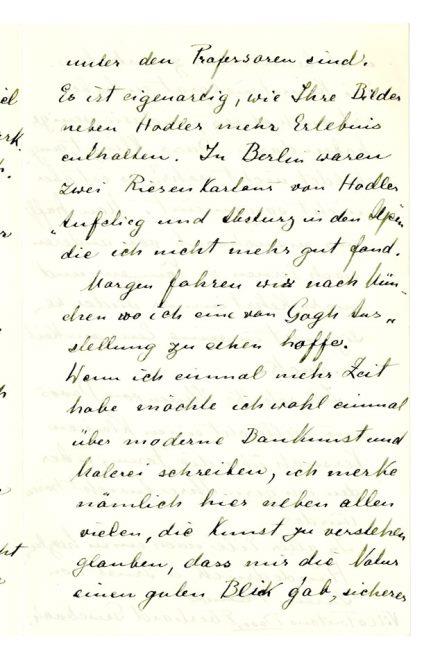 unter den Professoren sind.
Es ist eigenartig, wie Ihre Bilder
neben Hodler mehr Erlebnis
enthalten. In Berlin waren
zwei Riesenkartons von Hodler
„Aufstieg und Absturz in den Alpen
die ich nicht mehr gut fand.
Morgen fahren wir nach Mün-
chen wo ich eine van Gogh Aus„
stellung zu sehen hoffe.
Wenn ich einmal mehr Zeit
habe möchte ich wohl einmal
über moderne Baukunst und
Malerei schreiben, ich merke
nämlich hier neben allen
vielen, die Kunst zu verstehen
glauben, dass mir die Natur
einen guten Blick gab, sicherer